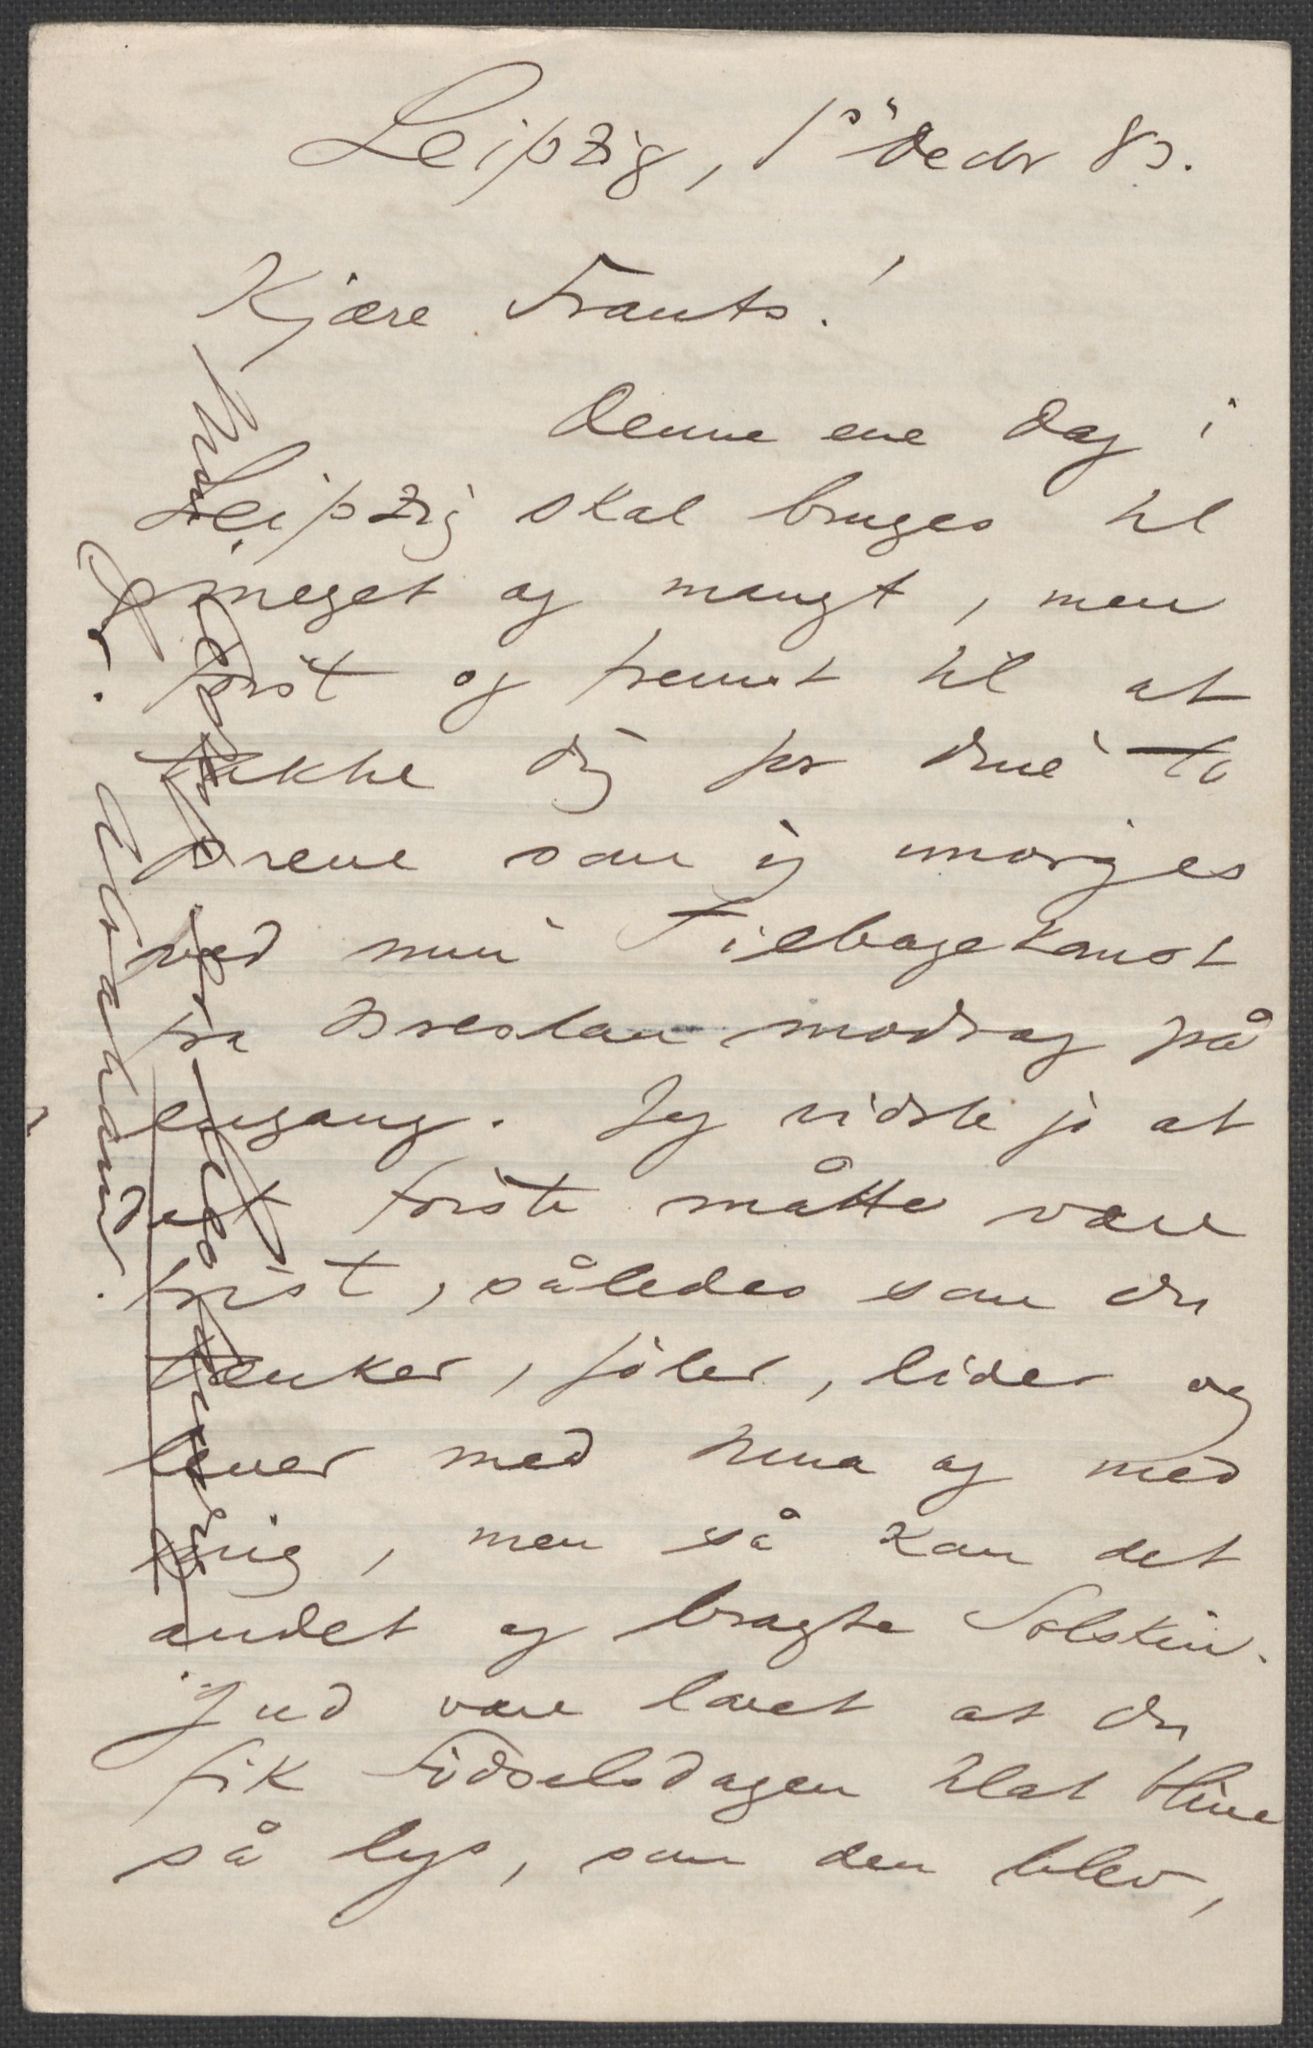 Leipzig, 1ste Decbr 83.
Kjære Frants!
Denne ene Dag i
Leipzig skal bruges til
meget og mangt, men
først og fremst til at
takke dig for dine to
Breve som jeg imorges
ved min Tilbagekomst
fra Breslau modtog på
engang. Jeg vidste jo at
det første måtte være
trist, således som du
tænker, føler, lider og
lever med Nina og med
mig, men så kom det
andet og bragte Solskin.
Gud være lovet at du
fik Fødselsdagen
så lys, som den blev,
Abraham.